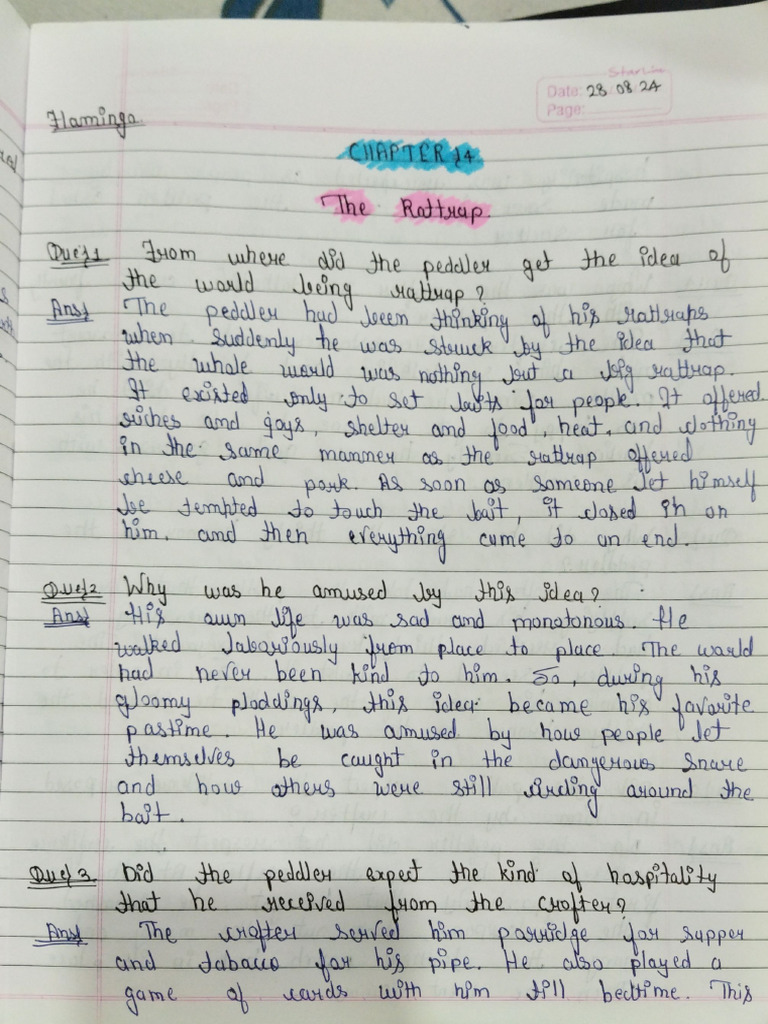 StarLine
Date: 28.08.24
Page:
Flamingo
CHAPTER 14
The Rattrap.
Ques1 From where did the peddler get the idea of
the world being rattrap?
Ans1 The peddler had been thinking of his rattraps
when suddenly he was struck by the idea that
the whole world was nothing but a big rattrap.
It existed only to set baits for people. It offered
riches and joys, shelter and food, heat, and clothing
in the same manner as the rattrap offered
cheese and pork. As soon as someone let himself
be tempted to touch the bait, it closed in on
him. and then everything came to an end.
Ques2 Why was he amused by this idea?
Ans1 His own life was sad and monotonous. He
walked laboriously from place to place. The world
had never been kind to him. So, during his
gloomy ploddings, this idea became his favorite
pastime. He was amused by how people let
themselves be caught in the dangerous snare
and how others were still circling around the
bait.
Ques 3. Did the peddler expect the kind of hospitality
that he received from the crofter?
Ans1 The crofter served him porridge for supper
and tabacco for his pipe. He also played a
game of cards with him till bedtime. This